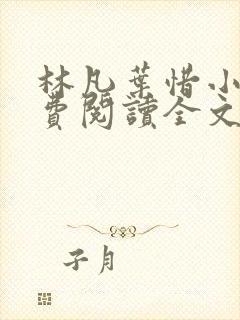 林凡葉惜小
費閱讀全文
子月